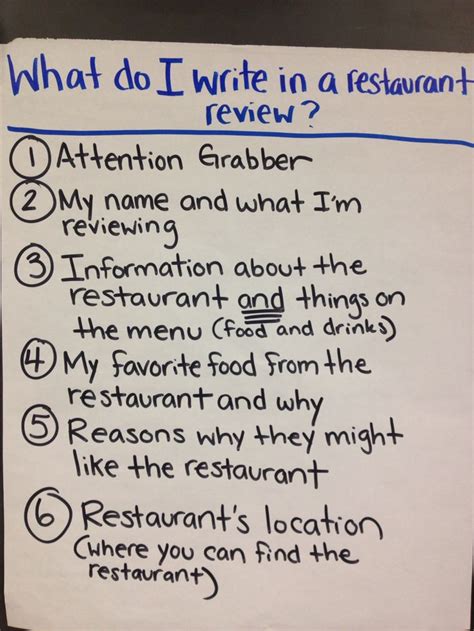 What do I write in a restaurant
review?
1 Attention Grabber
2 My name and what I'm
reviewing
3 Information about the
restaurant and things on
the menu (food and drinks)
4 My favorite food from the
restaurant and why
5 Reasons why they might
like the restaurant
6 Restaurant's location
(where you can find the
restaurant)